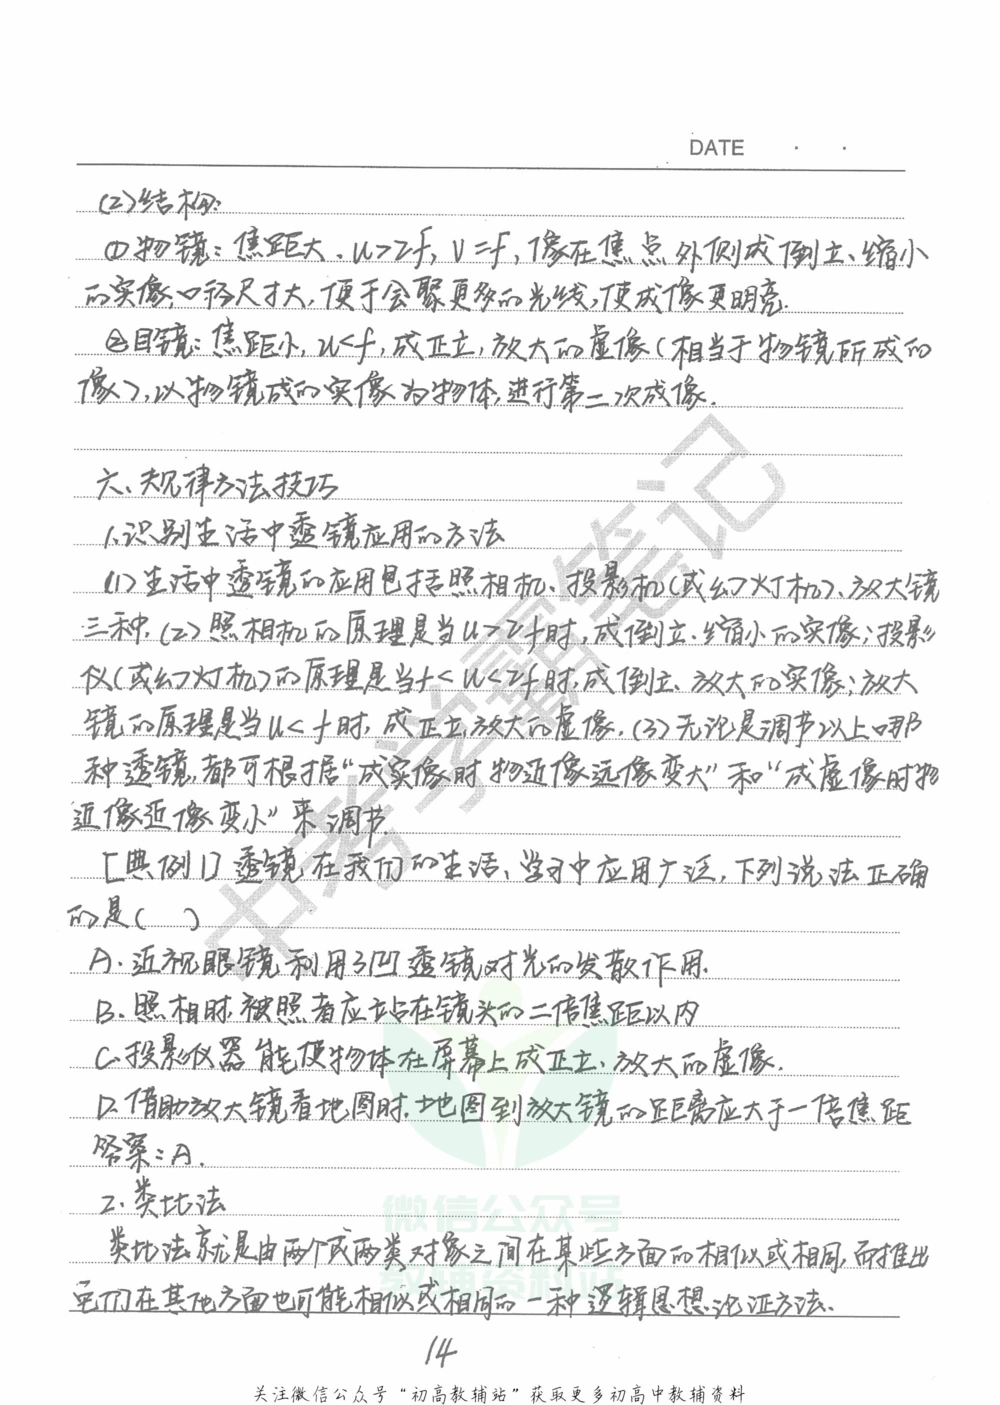 DATE · ·
(2)结构:
①物镜:焦距大、u>2f,v=f,像在焦点外侧成倒立、缩小
的实像,口径尺寸大,便于会聚更多的光线,使成像更明亮.
②目镜:焦距小,u<f,成正立,放大的虚像(相当于物镜所成的
像),以物镜成的实像为物体,进行第二次成像.
六、规律方法技巧
1.识别生活中透镜应用的方法
(1)生活中透镜的应用包括照相机、投影机(或幻灯机)、放大镜
三种.(2)照相机的原理是当u>2f时,成倒立、缩小的实像;投影
仪(或幻灯机)的原理是当f<u<2f时,成倒立、放大的实像;放大
镜的原理是当u<f时,成正立,放大的虚像.(3)无论是调节以上哪
种透镜,都可根据“成实像时物近像远像变大”和“成虚像时物
近像近像变小”来调节.
[典例1]透镜在我们的生活、学习中应用广泛,下列说法正确
的是( )
A.近视眼镜利用了凹透镜对光的发散作用.
B.照相时,被照者应站在镜头的二倍焦距以内
C.投影仪器能使物体在屏幕上成正立、放大的虚像.
D.借助放大镜看地图时,地图到放大镜的距离应大于一倍焦距
答案:A.
2.类比法
类比法就是由两个或两类对象之间在某些方面的相似或相同,而推出
它们在其他方面也可能相似或相同的一种逻辑思想论证方法.
14
关注微信公众号“初高教辅站”获取更多初高中教辅资料
中考学霸笔记
微信公众号
教辅资料站